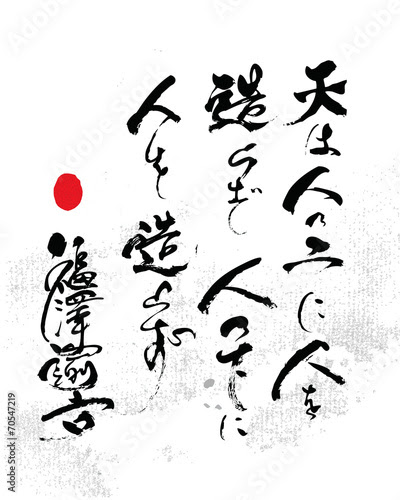 天は人の上に人を
造らず人の下に
人を造らず
福澤諭吉
Adobe Stock | #70547219